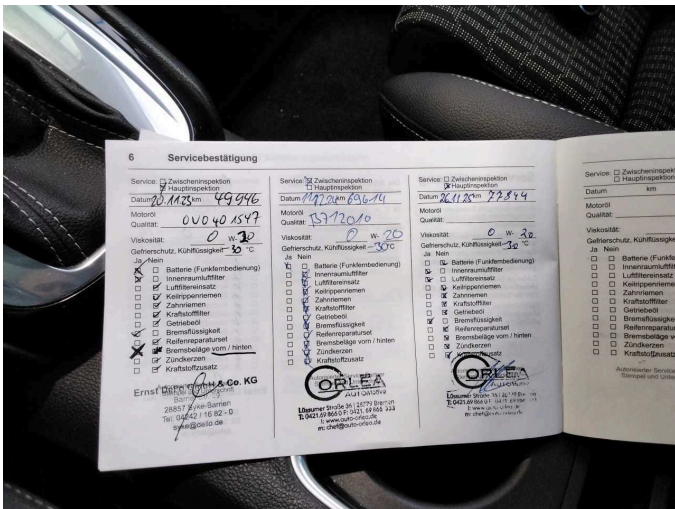 6 Servicebestätigung
Service: Zwischeninspektion
Hauptinspektion
Datum 20.11.23 km 49946
Motoröl
Qualität: OVO 40 1547
Viskosität: 0 W-30
Gefrierschutz, Kühlflüssigkeit -30 °C
Ja Nein
Batterie (Funkfernbedienung)
Innenraumluftfilter
Luftfiltereinsatz
Keilrippenriemen
Zahnriemen
Kraftstofffilter
Getriebeöl
Bremsflüssigkeit
Reifenreparaturset
Bremsbeläge vorn / hinten
Zündkerzen
Kraftstoffzusatz
Ernst GmbH & Co. KG
28857 Syke-Barrien
Tel. 04242 / 16 82 - 0
Service: Zwischeninspektion
Hauptinspektion
Datum km 69614
Motoröl
Qualität: B712010
Viskosität: 0 W-20
Gefrierschutz, Kühlflüssigkeit -30 °C
Ja Nein
Batterie (Funkfernbedienung)
Innenraumluftfilter
Luftfiltereinsatz
Keilrippenriemen
Zahnriemen
Kraftstofffilter
Getriebeöl
Bremsflüssigkeit
Reifenreparaturset
Bremsbeläge vorn / hinten
Zündkerzen
Kraftstoffzusatz
ORLEA
AUTOMOTIVE
Straße 36 | 28779 Bremen
T: 0421.69 866 0 F: 0421. 69 866 333
I: www.auto-orlea.de
m: chef@auto-orlea.de
Service: Zwischeninspektion
Hauptinspektion
Datum 26.11.25 km 77844
Motoröl
Qualität:
Viskosität: 0 W-20
Gefrierschutz, Kühlflüssigkeit -30 °C
Ja Nein
Batterie (Funkfernbedienung)
Innenraumluftfilter
Luftfiltereinsatz
Keilrippenriemen
Zahnriemen
Kraftstofffilter
Getriebeöl
Bremsflüssigkeit
Reifenreparaturset
Bremsbeläge vorn / hinten
Zündkerzen
Kraftstoffzusatz
ORLEA
AUTOMOTIVE
m: chef@auto-orlea.de
Service: Zwischeninspektion
Hauptinspektion
Datum km
Motoröl
Qualität:
Viskosität:
Gefrierschutz, Kühlflüssigke
Ja Nein
Batterie (Funkfe
Innenraumluftfi
Luftfiltereinsatz
Keilrippenrieme
Zahnriemen
Kraftstofffilter
Getriebeöl
Bremsflüssigk
Reifenreparatu
Bremsbeläge vo
Zündkerzen
Kraftstoffzusatz
Autorisierter Service
Stempel und Unte